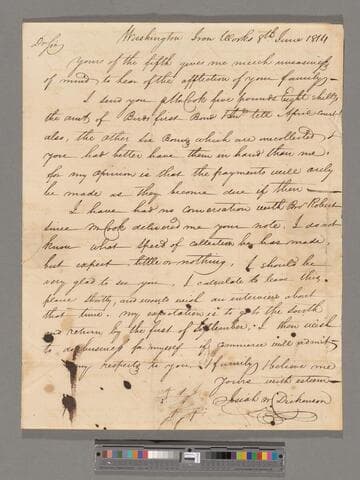 Washington Iron Works 8th June 1814
Dr Sir
Yours of the fifth gives me much uneasiness
of mind to hear of the affliction of your family —
I send you p McCook five pounds Eight shillgs
the amt of Buds first Bond & Int till April Court
also, the other six Bonds which are uncollected &
you had better have them in hand than me.
for my opinion is that the payments will only
be made as they become due if then —
I have had no conversation with Bro Robert
since McCook delivered me your note. I do not
know what speed of collection he has made,
but expect little or nothing. I should be
very glad to see you. I calculate to leave this
place shortly, and would wish an interview about
that time. my expectation is to go to the South
and return by the first of September. I then wish
to do business for myself if commerce will admit
my respects to you & family & believe me
Yours with esteem
Josiah W. Dickenson